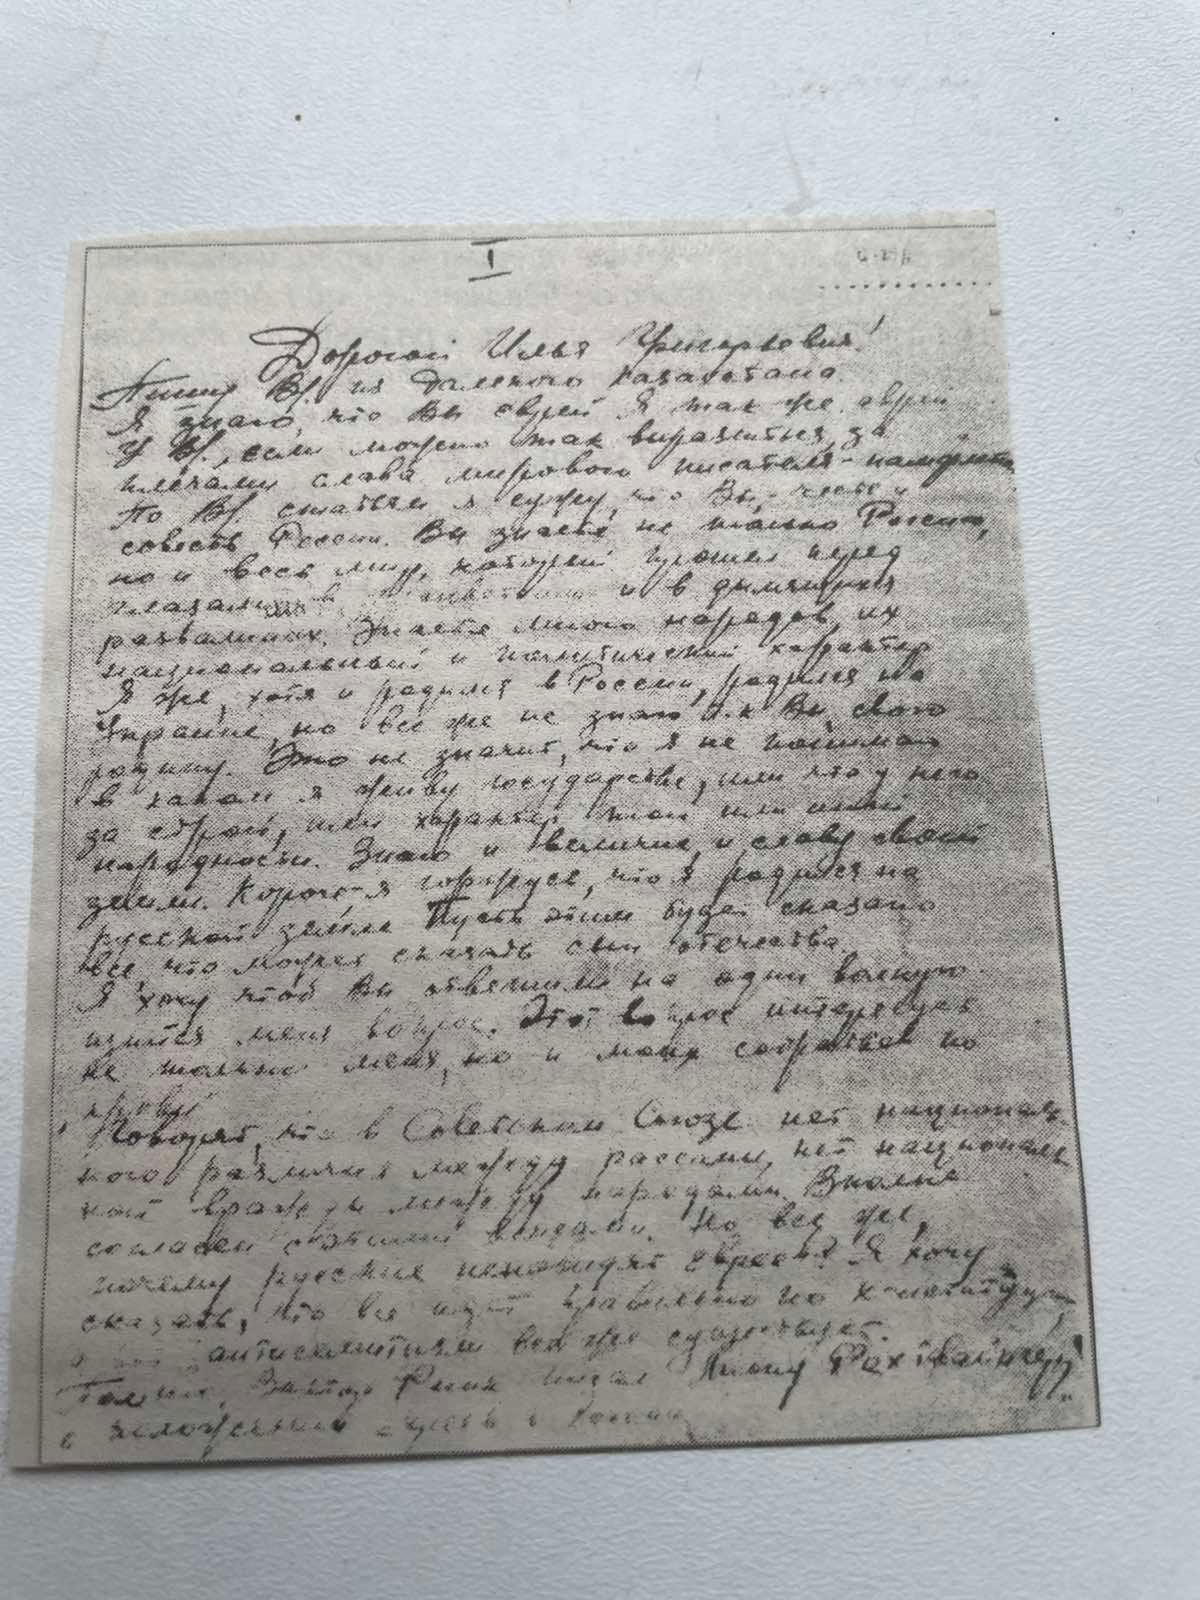 I
Дорогой Илья Григорьевич!
Пишу В/ из далекого Казахстана.
Я знаю, что Вы еврей Я так же еврей
У В/, если можно так выразиться, за
плечами слава мирового писателя-памфлети
По В/ статьям я сужу, что Вы - честь и
совесть России. Вы знаете не только Россию,
но и весь мир, который прошел перед
глазами и в дымящихся
развалинах. Знаете много народов, их
национальный и политический характер
Я же, хотя и родился в России, родился на
Украине, но все же не знаю т.к Вы, свою
родину. Это не значит, что я не понимаю
в каком я живу государстве, или что у него
за строй, или характер той или иной
народности. Знаю и величие, и славу своей
земли. Короче-я горжусь, что я родился на
русской земле Пусть этим будет сказано
все, что может сказать сын отечества.
Я хочу чтоб Вы ответили на один волную
щийся меня вопрос. Этот вопрос интересует
не только меня, но и моих собратьев по
крови
Говорят, что в Советском Союзе нет националь-
ного различия между рассами, нет националь
ной вражды между народами. Вполне
согласен с этими вещами. Но все же,
почему русские ненавидят евреев? Я хочу
сказать, что все идет правильно по конституции,
а антисемитизм все же существует.
писал Лиону Фахтвайнгеру
о положении в России